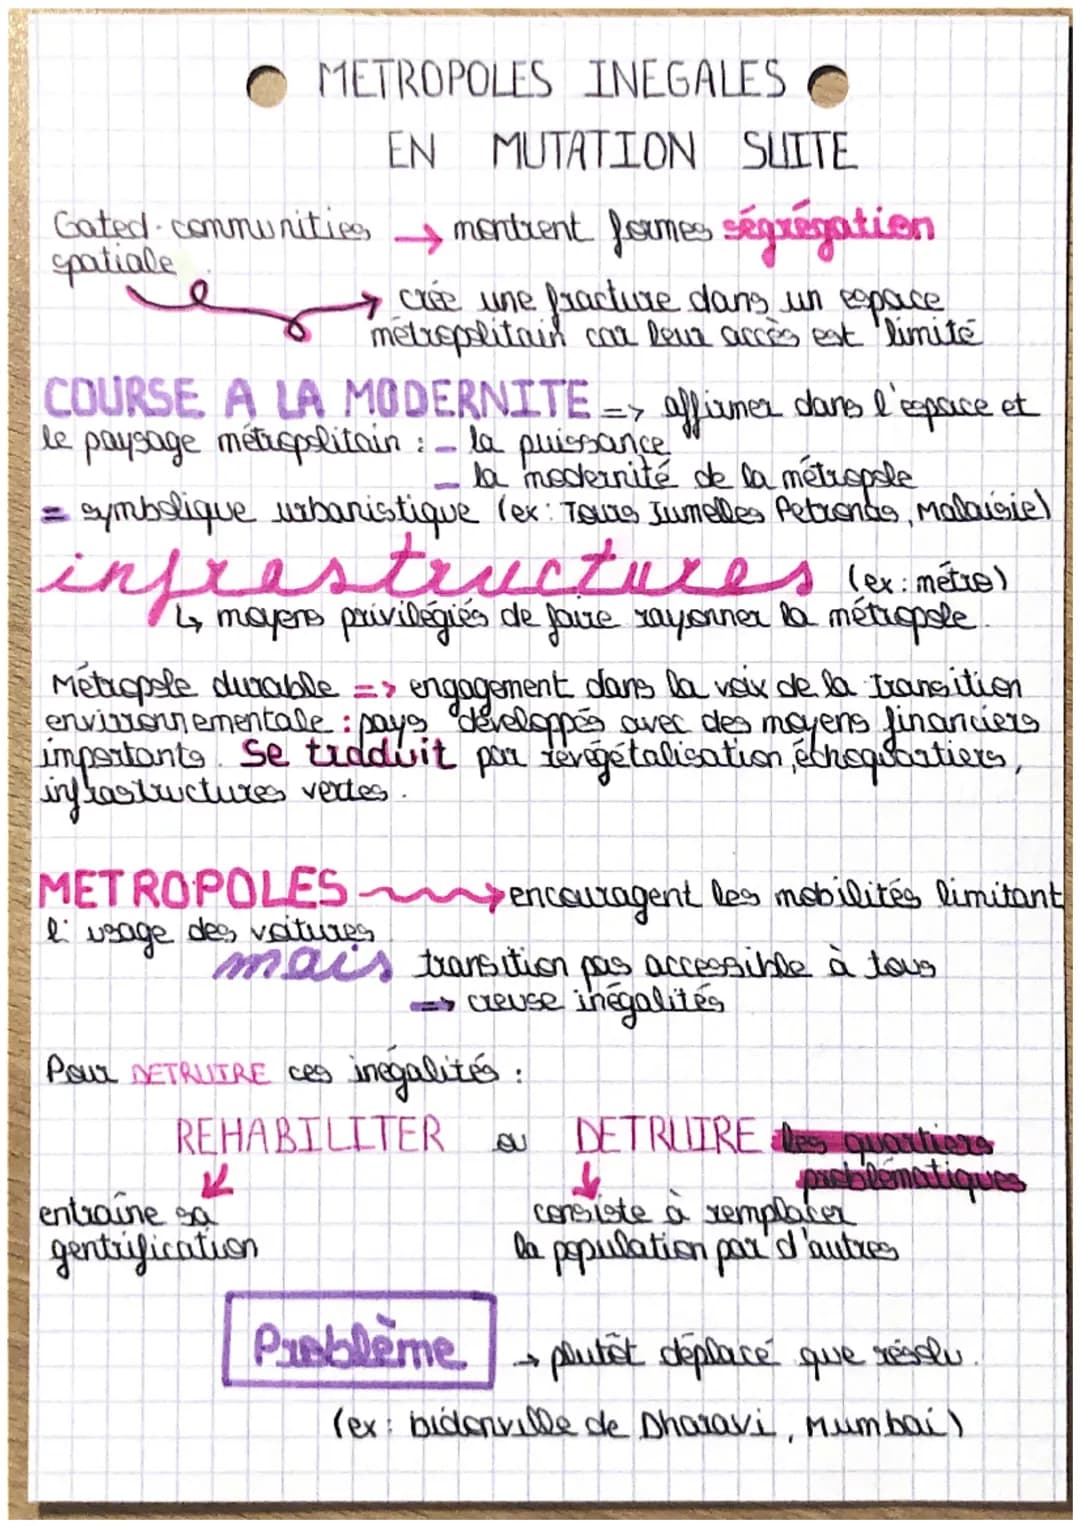 METROPOLES INEGALES
EN MUTATION SUITE
Gated-communities → montrent formes ségrégation
spatiale
→ crée une fracture dans un espace
métropolitain car leur accès est limité
COURSE A LA MODERNITE => affirmer dans l'espace et
le paysage métropolitain : - la puissance
- la modernité de la métropole
= symbolique urbanistique (ex: Tours Jumelles Petronas, Malaisie)
infrastructures (ex: métro)
↳ moyens privilégiés de faire rayonner la métropole.
Métropole durable => engagement dans la voix de la transition
environnementale : pays développés avec des moyens financiers
importants. Se traduit par revégétalisation, échoquartiers,
infrastructures vertes.
METROPOLES → encouragent les mobilités limitant
l'usage des voitures
mais transition pas accessible à tous
=> creuse inégalités
Pour DETRUIRE ces inégalités :
REHABILITER ou DETRUIRE les quartiers
problématiques
entraîne sa consiste à remplacer
gentrification la population par d'autres
Problème → plutôt déplacé que résolu.
(ex: bidonville de Dharavi, Mumbai)